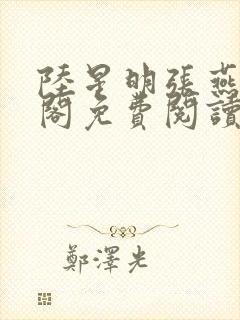 陸星明張燕
閣免費閱讀
鄭澤光